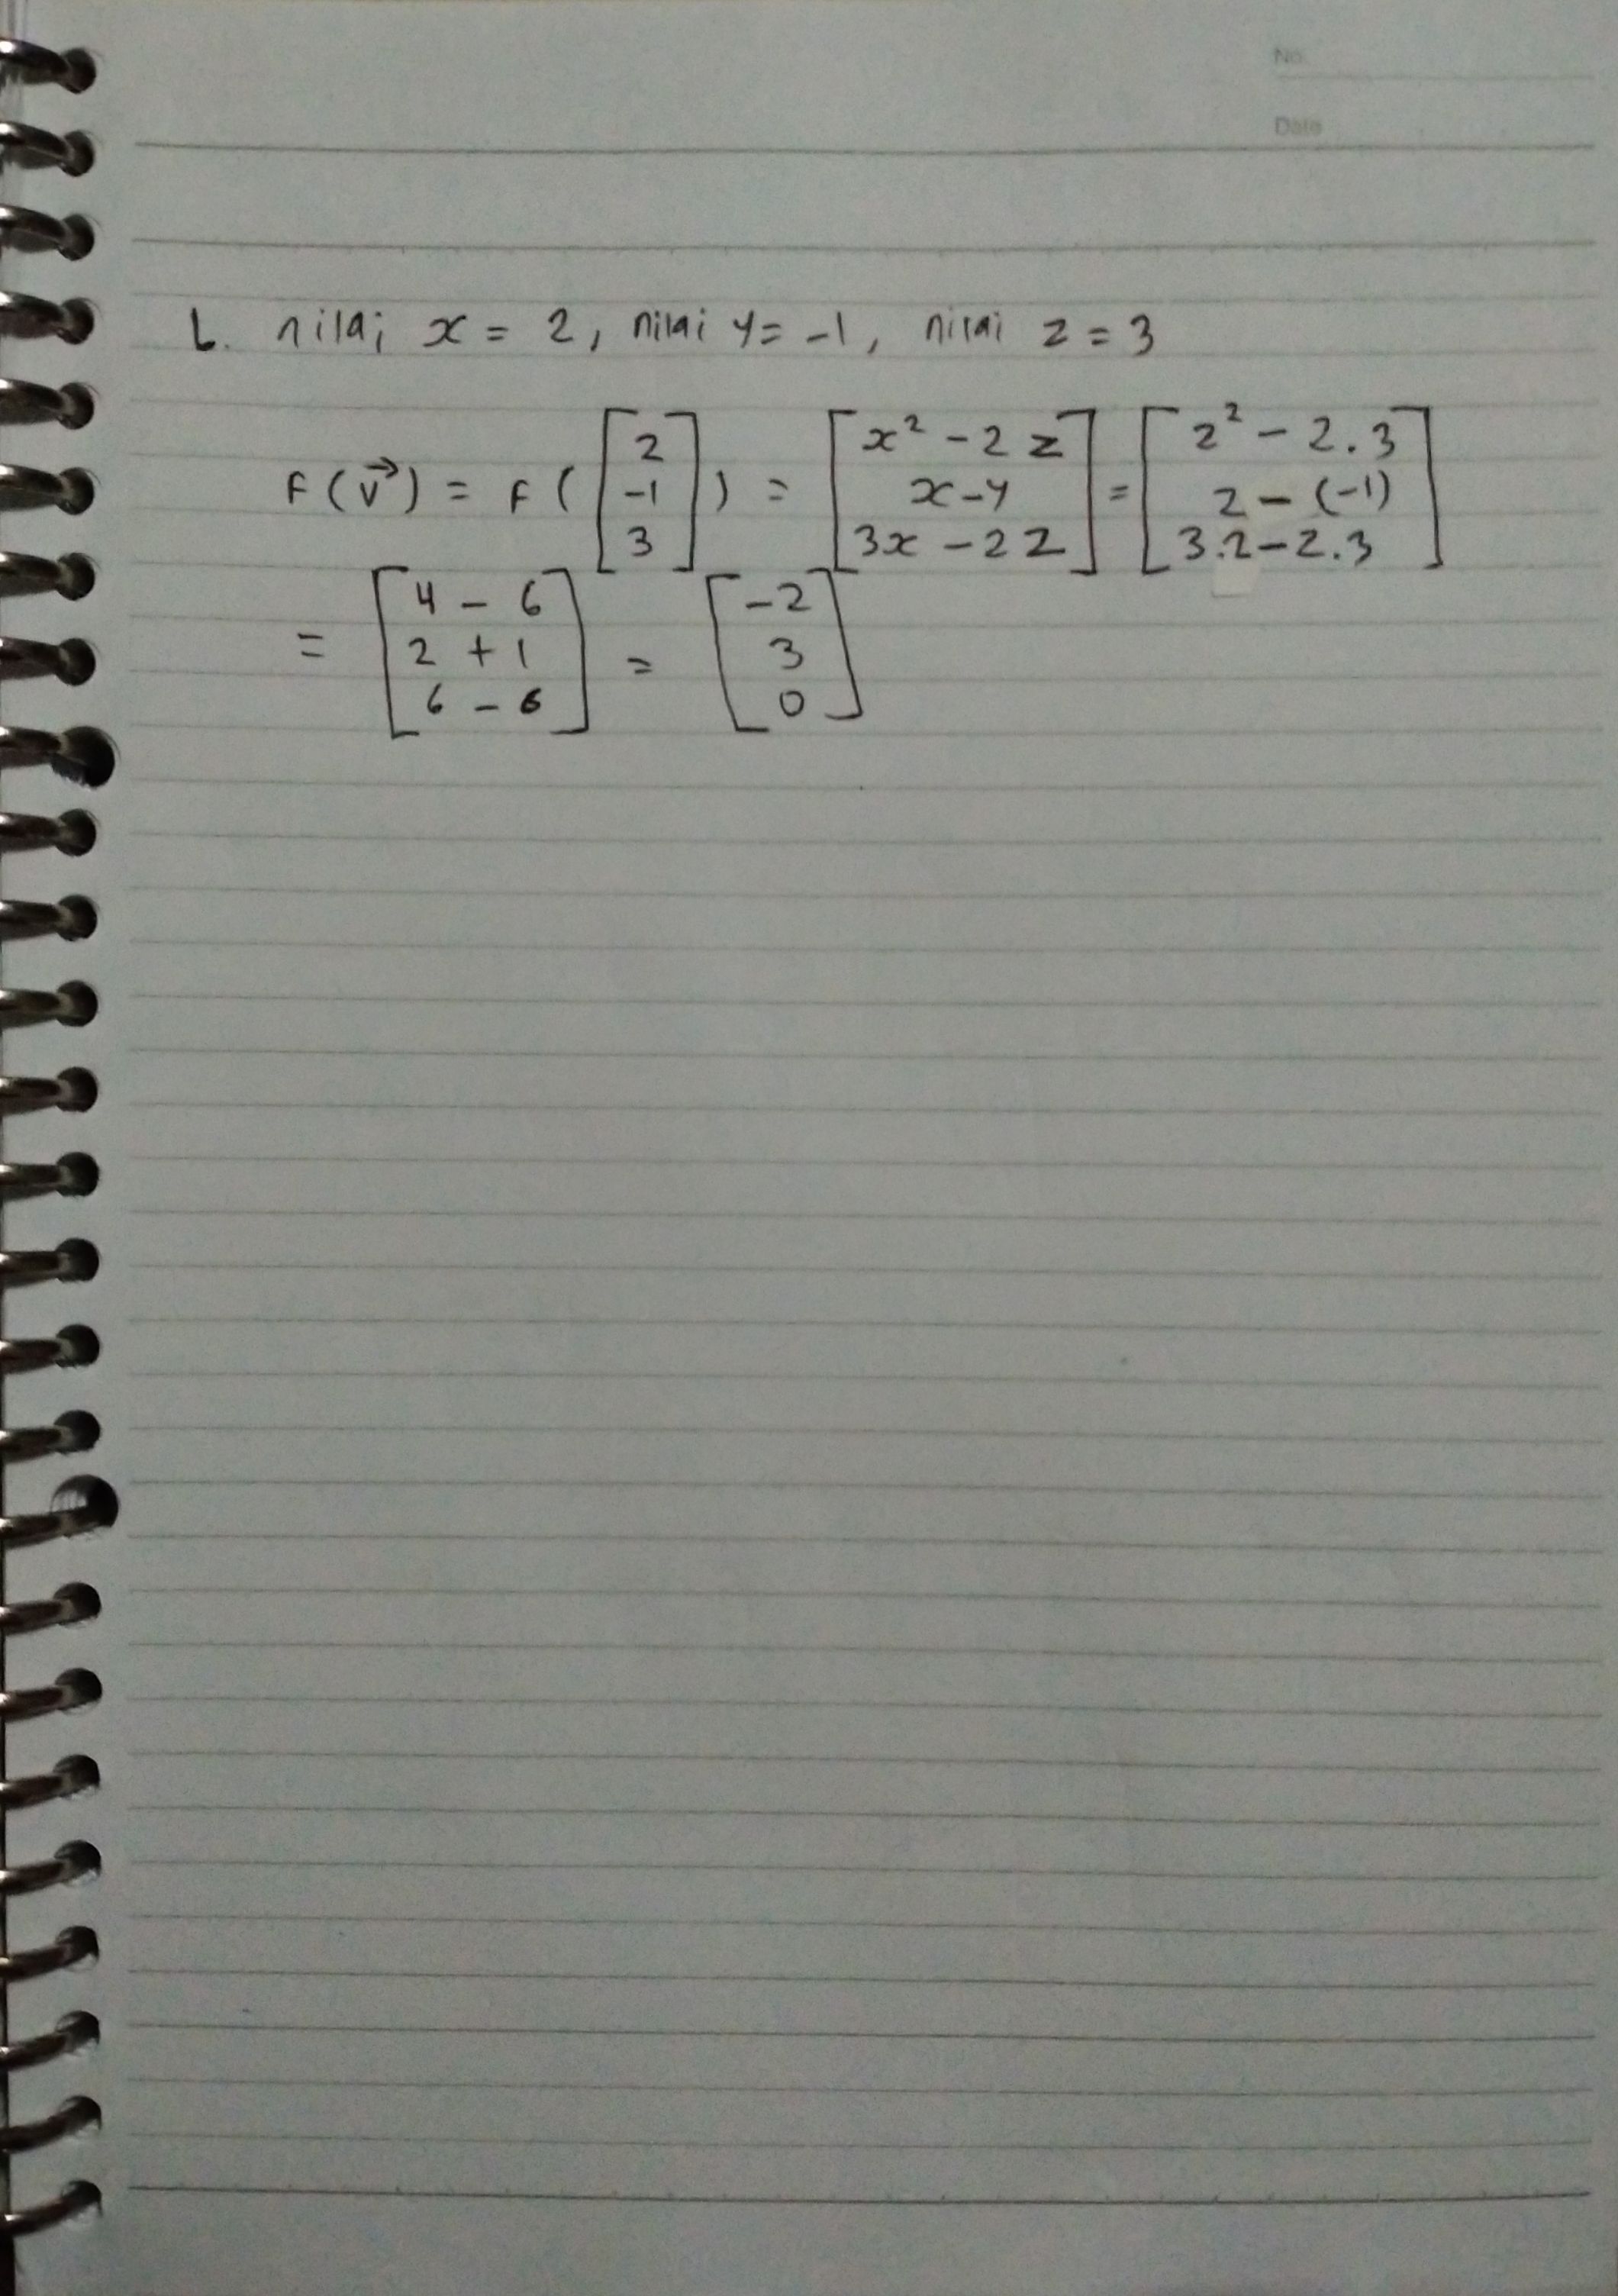 No.
Date
1. nilai x = 2, nilai y = -1, nilai z = 3
F(v⃗) = F([2 -1 3]) = [x² - 2z x - y 3x - 2z] = [2² - 2.3 2 - (-1) 3.2 - 2.3]
= [4 - 6 2 + 1 6 - 6] = [-2 3 0]